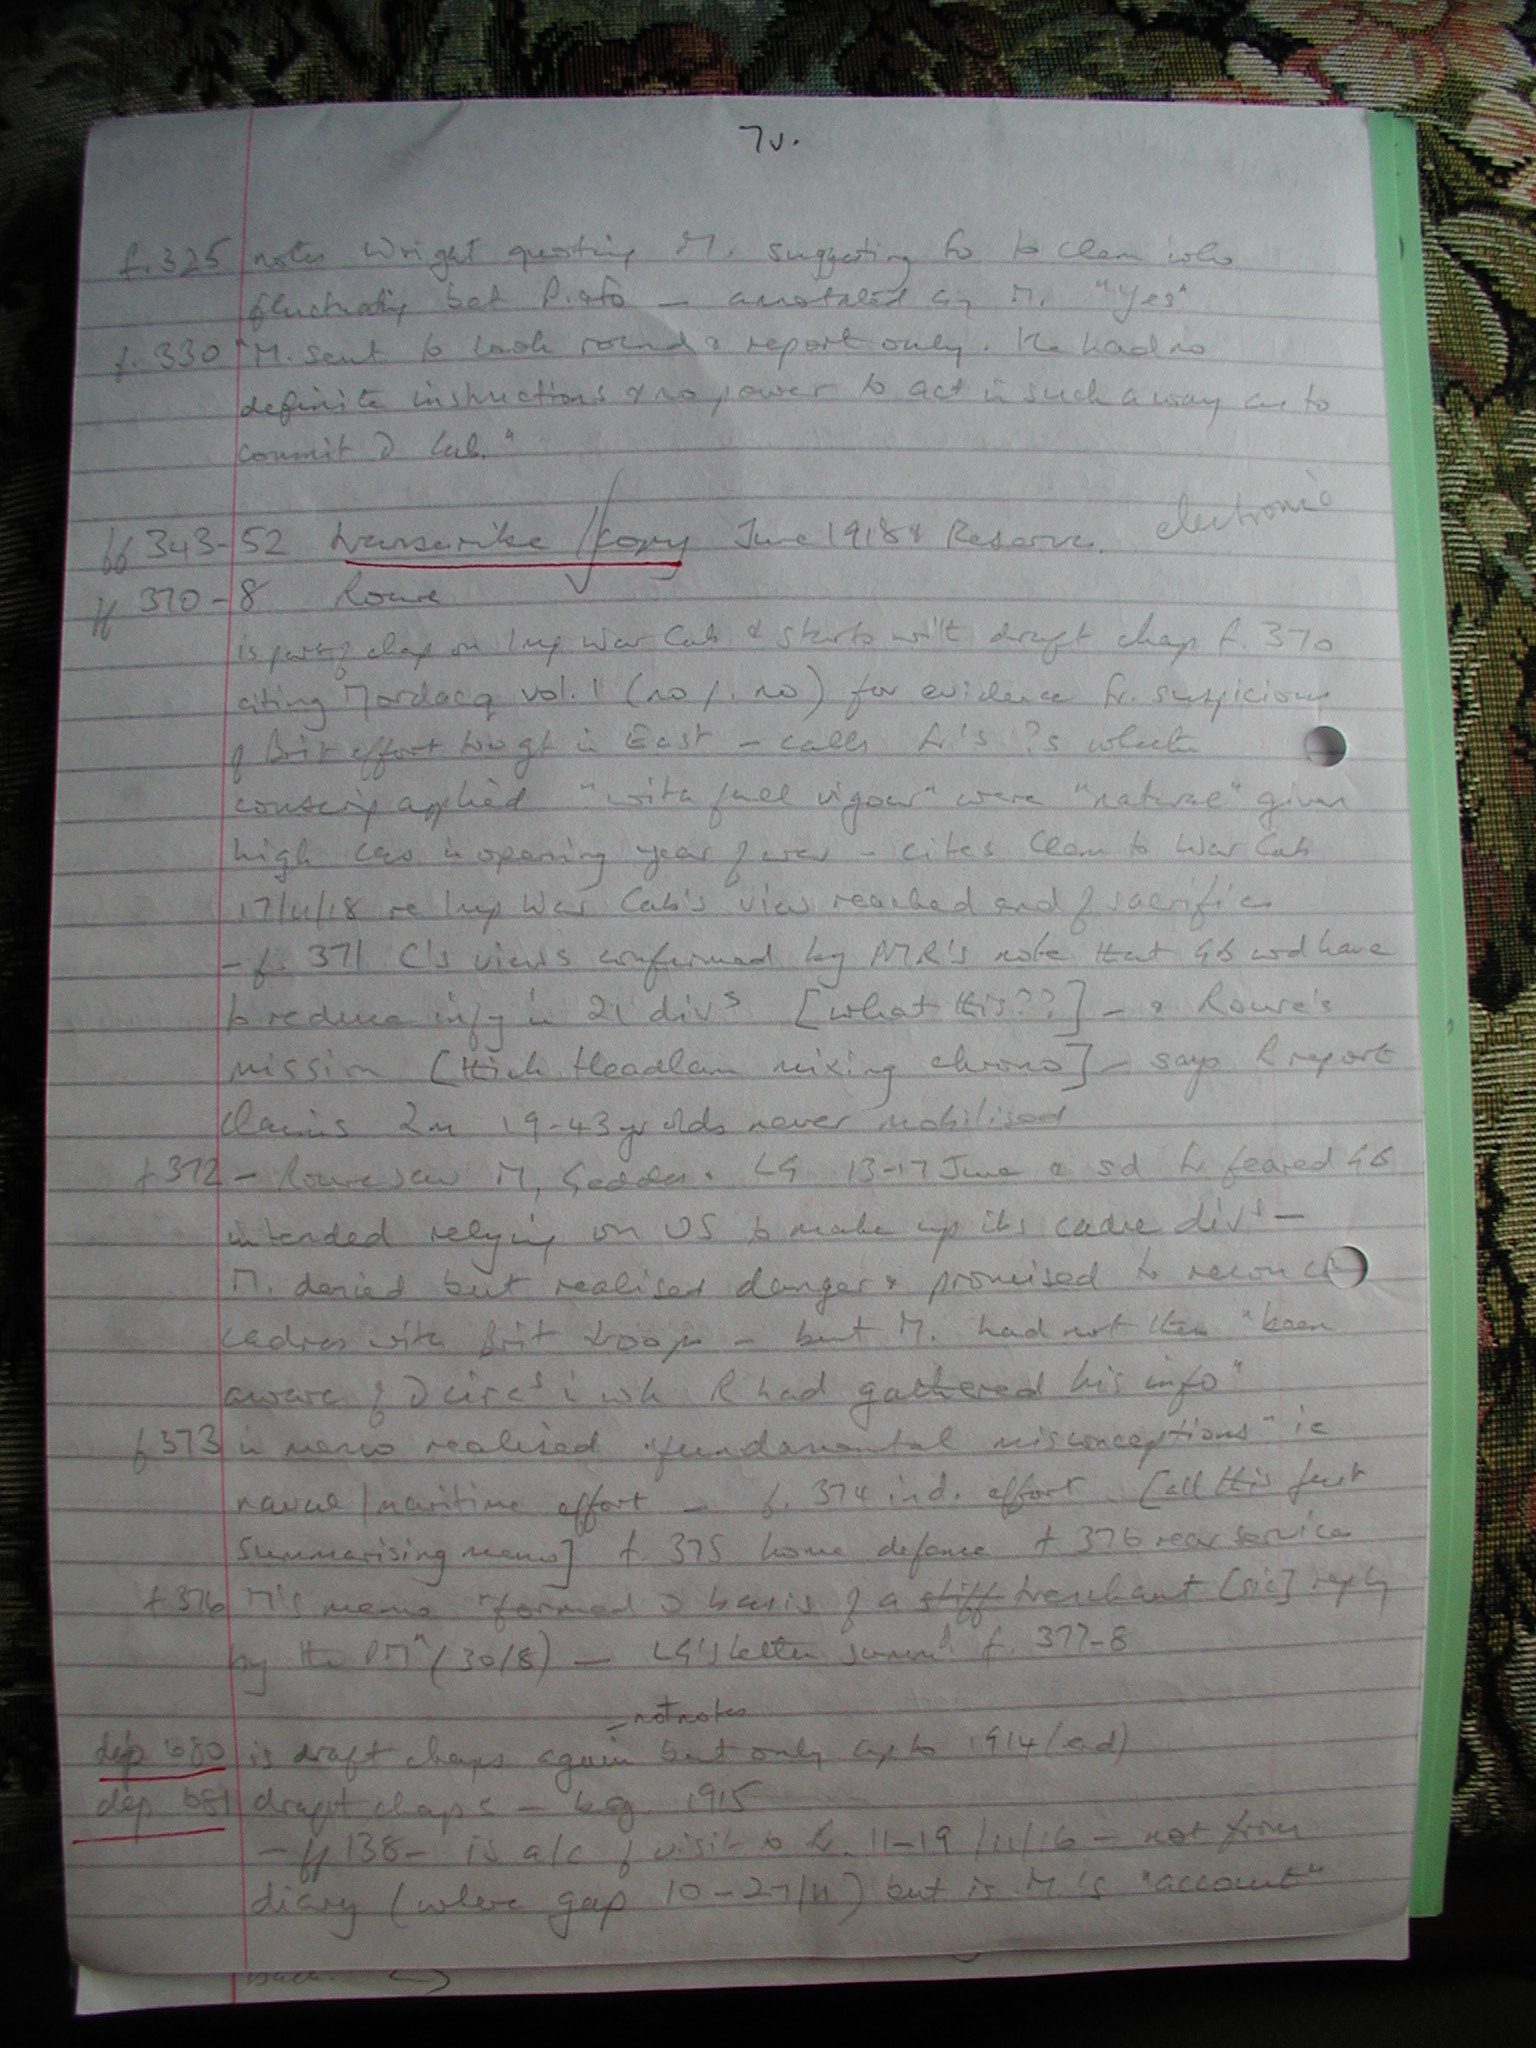 7v.
f. 325 notes Wright quoting M. suggesting Fo to Clem who
fluctuating bet P. & Fo — annotated by M. "Yes"
f. 330 "M. sent to look round & report only. He had no
definite instructions & no power to act in such a way as to
commit Cab."
electronic
ff 343-52 transcribe/copy June 1918 & Reserve.
ff 370-8 Roure
is part of chap on Imp War Cab & starts draft chap f. 370
citing Mordacq vol. 1 (no p. no) for evidence Fr. suspicions
of Brit effort in East — calls Fr's ?s whether
conscrip applied "with full vigour" were "natural" given
high cas in opening year of war — cites Clem to War Cab
re Imp War Cab's view reached end of sacrifice
- f. 371 C's views confirmed by MR's note that GB wd have
to reduce infy in 21 divs [what this??] — & Roure's
mission [think Headlam mixing chrono] — says R report
claims 2m 19-43 yr olds never mobilised
f 372 - Roure saw M, Geddes & LG 13-17 June & sd Fr feared GB
intended relying on US to make up its cadre divs —
M. denied but realised danger & promised to
cadres with Brit troops — but M. had not then "been
aware of circs i wh R had gathered his info"
f 373 in memo realised "fundamental misconceptions" ie
naval/maritime effort — f. 374 ind. effort [all this just
summarising memo] f. 375 home defence f 376 rear services
f 376 M's memo "formed basis of a stiff trenchant [sic] reply
by the PM" (30/8) — LG's letter f. 377-8
- not notes
dep 680 is draft chaps again but only up to 1914 (end)
dep 681 draft chaps - beg 1915
- ff 138- is a/c of visit to Fr. 11-19/11/16 - not from
diary (where gap 10-27/11) but is M's "account"
back.